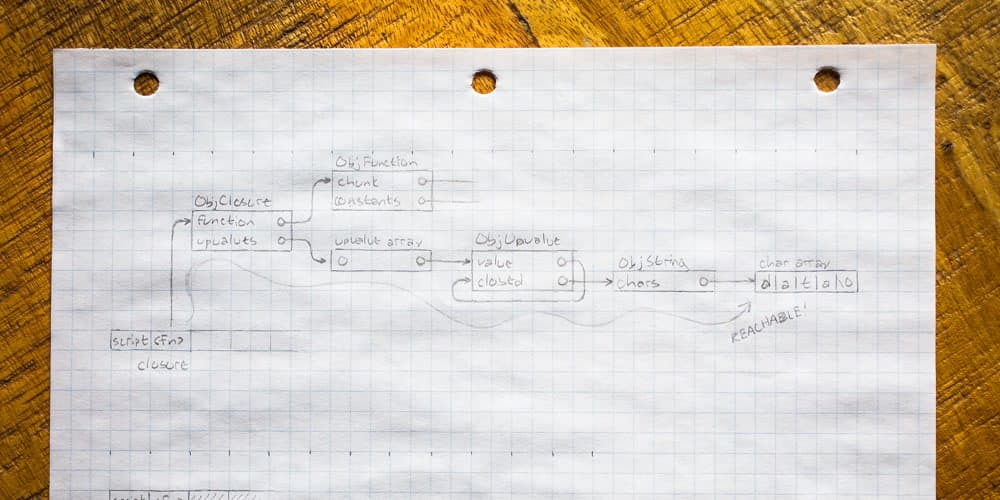 ObjFunction
chunk
constants
ObjClosure
function
upvalues
upvalue array
ObjUpvalue
value
closed
ObjString
chars
char array
d a t a \0
REACHABLE!
script <fn>
closure